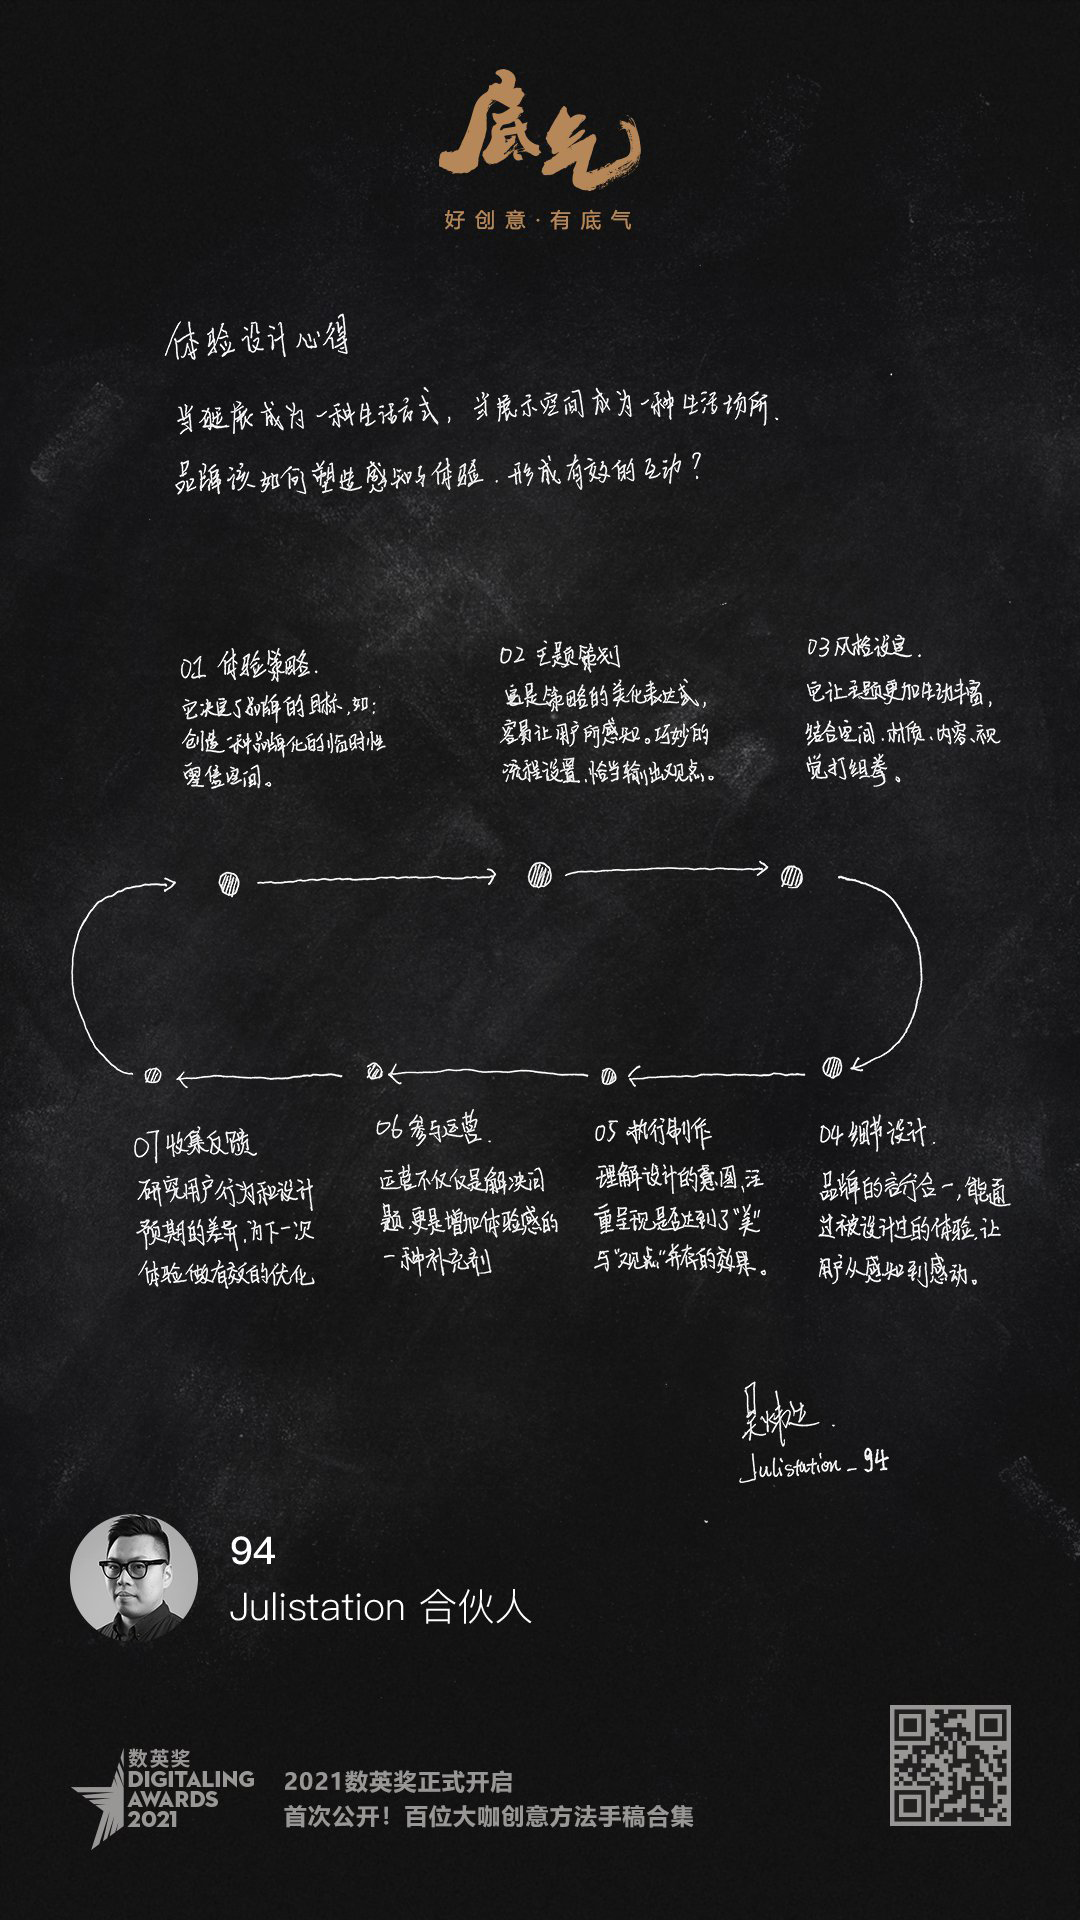 底气
好创意·有底气
体验设计心得
当逛展成为一种生活方式，当展示空间成为一种生活场所.
品牌该如何塑造感知与体验.形成有效的互动?
01 体验策略.
它决定了品牌的目标,如:
创造一种品牌化的临时性
零售空间。
02 主题策划
这是策略的美化表达式，
容易让用户所感知。巧妙的
流程设置.恰当输出观点。
03风格设定.
它让主题更加生动丰富，
结合空间、材质、内容、视
觉打组拳。
04 细节设计.
品牌的言行合一,能通
过被设计过的体验,让
用户从感知到感动。
05 执行制作
理解设计的意图,注
重呈现是否达到了"美"
与"观点"并存的效果。
06 参与运营.
运营不仅仅是解决问
题.更是增加体验感的
一种补充剂
07 收集反馈
研究用户行为和设计
预期的差异,为下一次
体验做有效的优化
Julistation_94
94
Julistation 合伙人
数英奖
DIGITALING
AWARDS
2021
2021数英奖正式开启
首次公开！百位大咖创意方法手稿合集